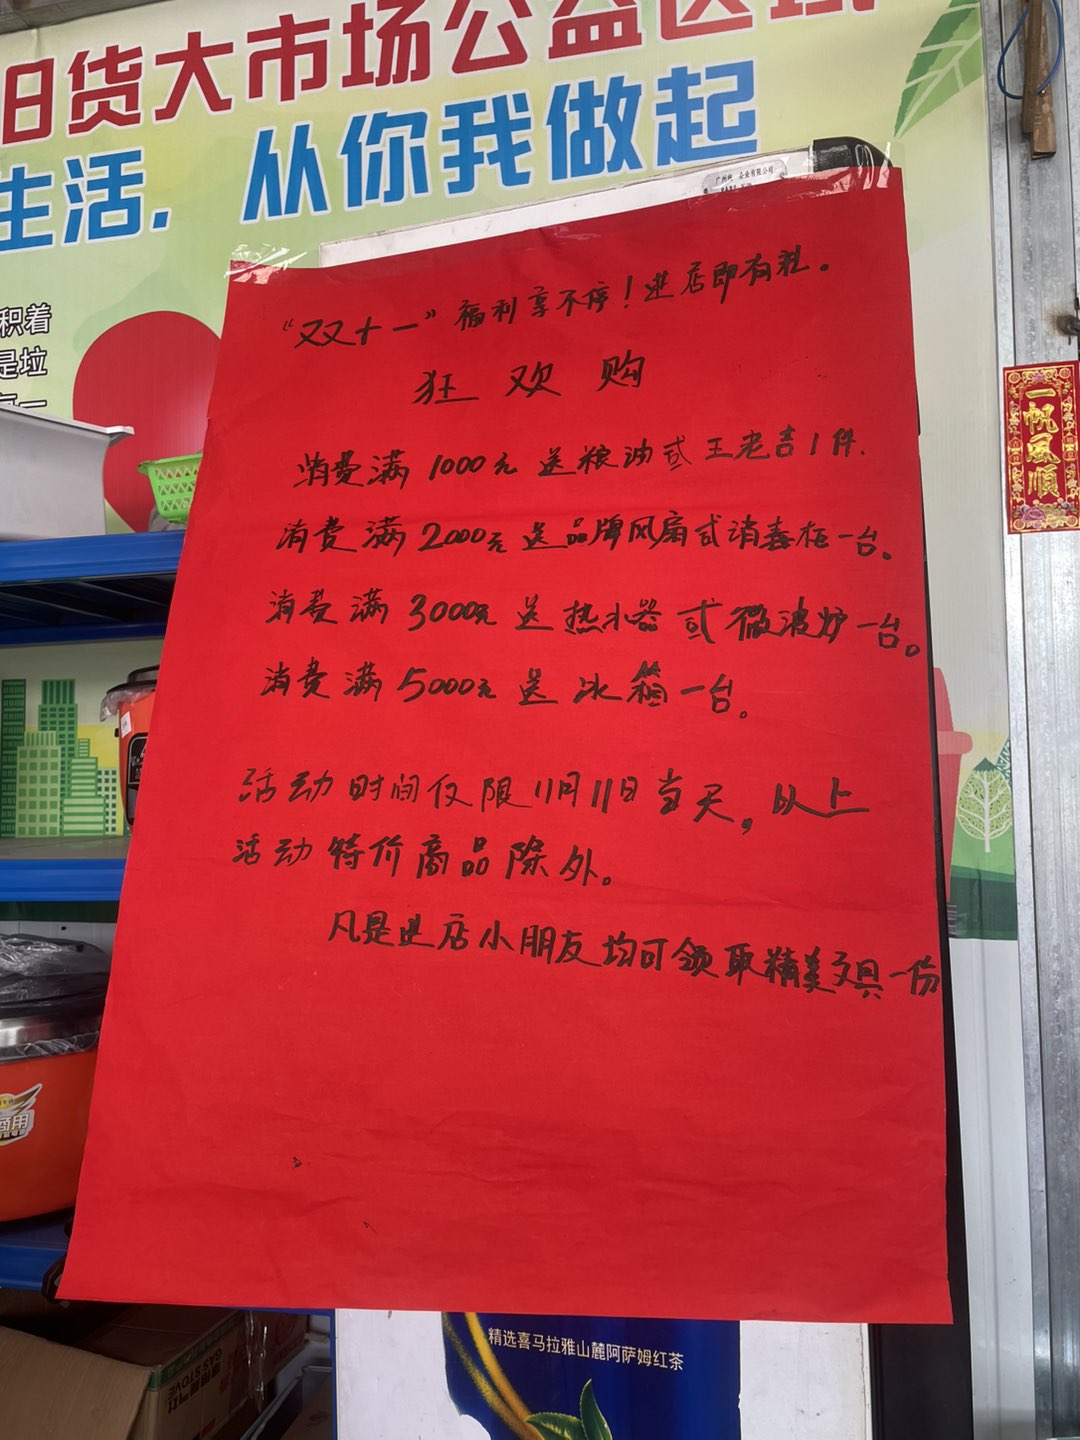 旧货大市场公益区域
生活，从你我做起
积着
是垃
广州
企业有限公司
“双双十一”福利享不停！进店即有礼。
狂欢购
消费满1000元送粮油或王老吉1件.
消费满2000元送品牌风扇或消毒柜一台。
消费满3000元送热水器或微波炉一台。
消费满5000元送冰箱一台。
活动时间仅限11月11日当天，以上
活动特价商品除外。
凡是进店小朋友均可领取精美文具一份
一帆风顺
商用
GAS STOVE
精选喜马拉雅山麓阿萨姆红茶